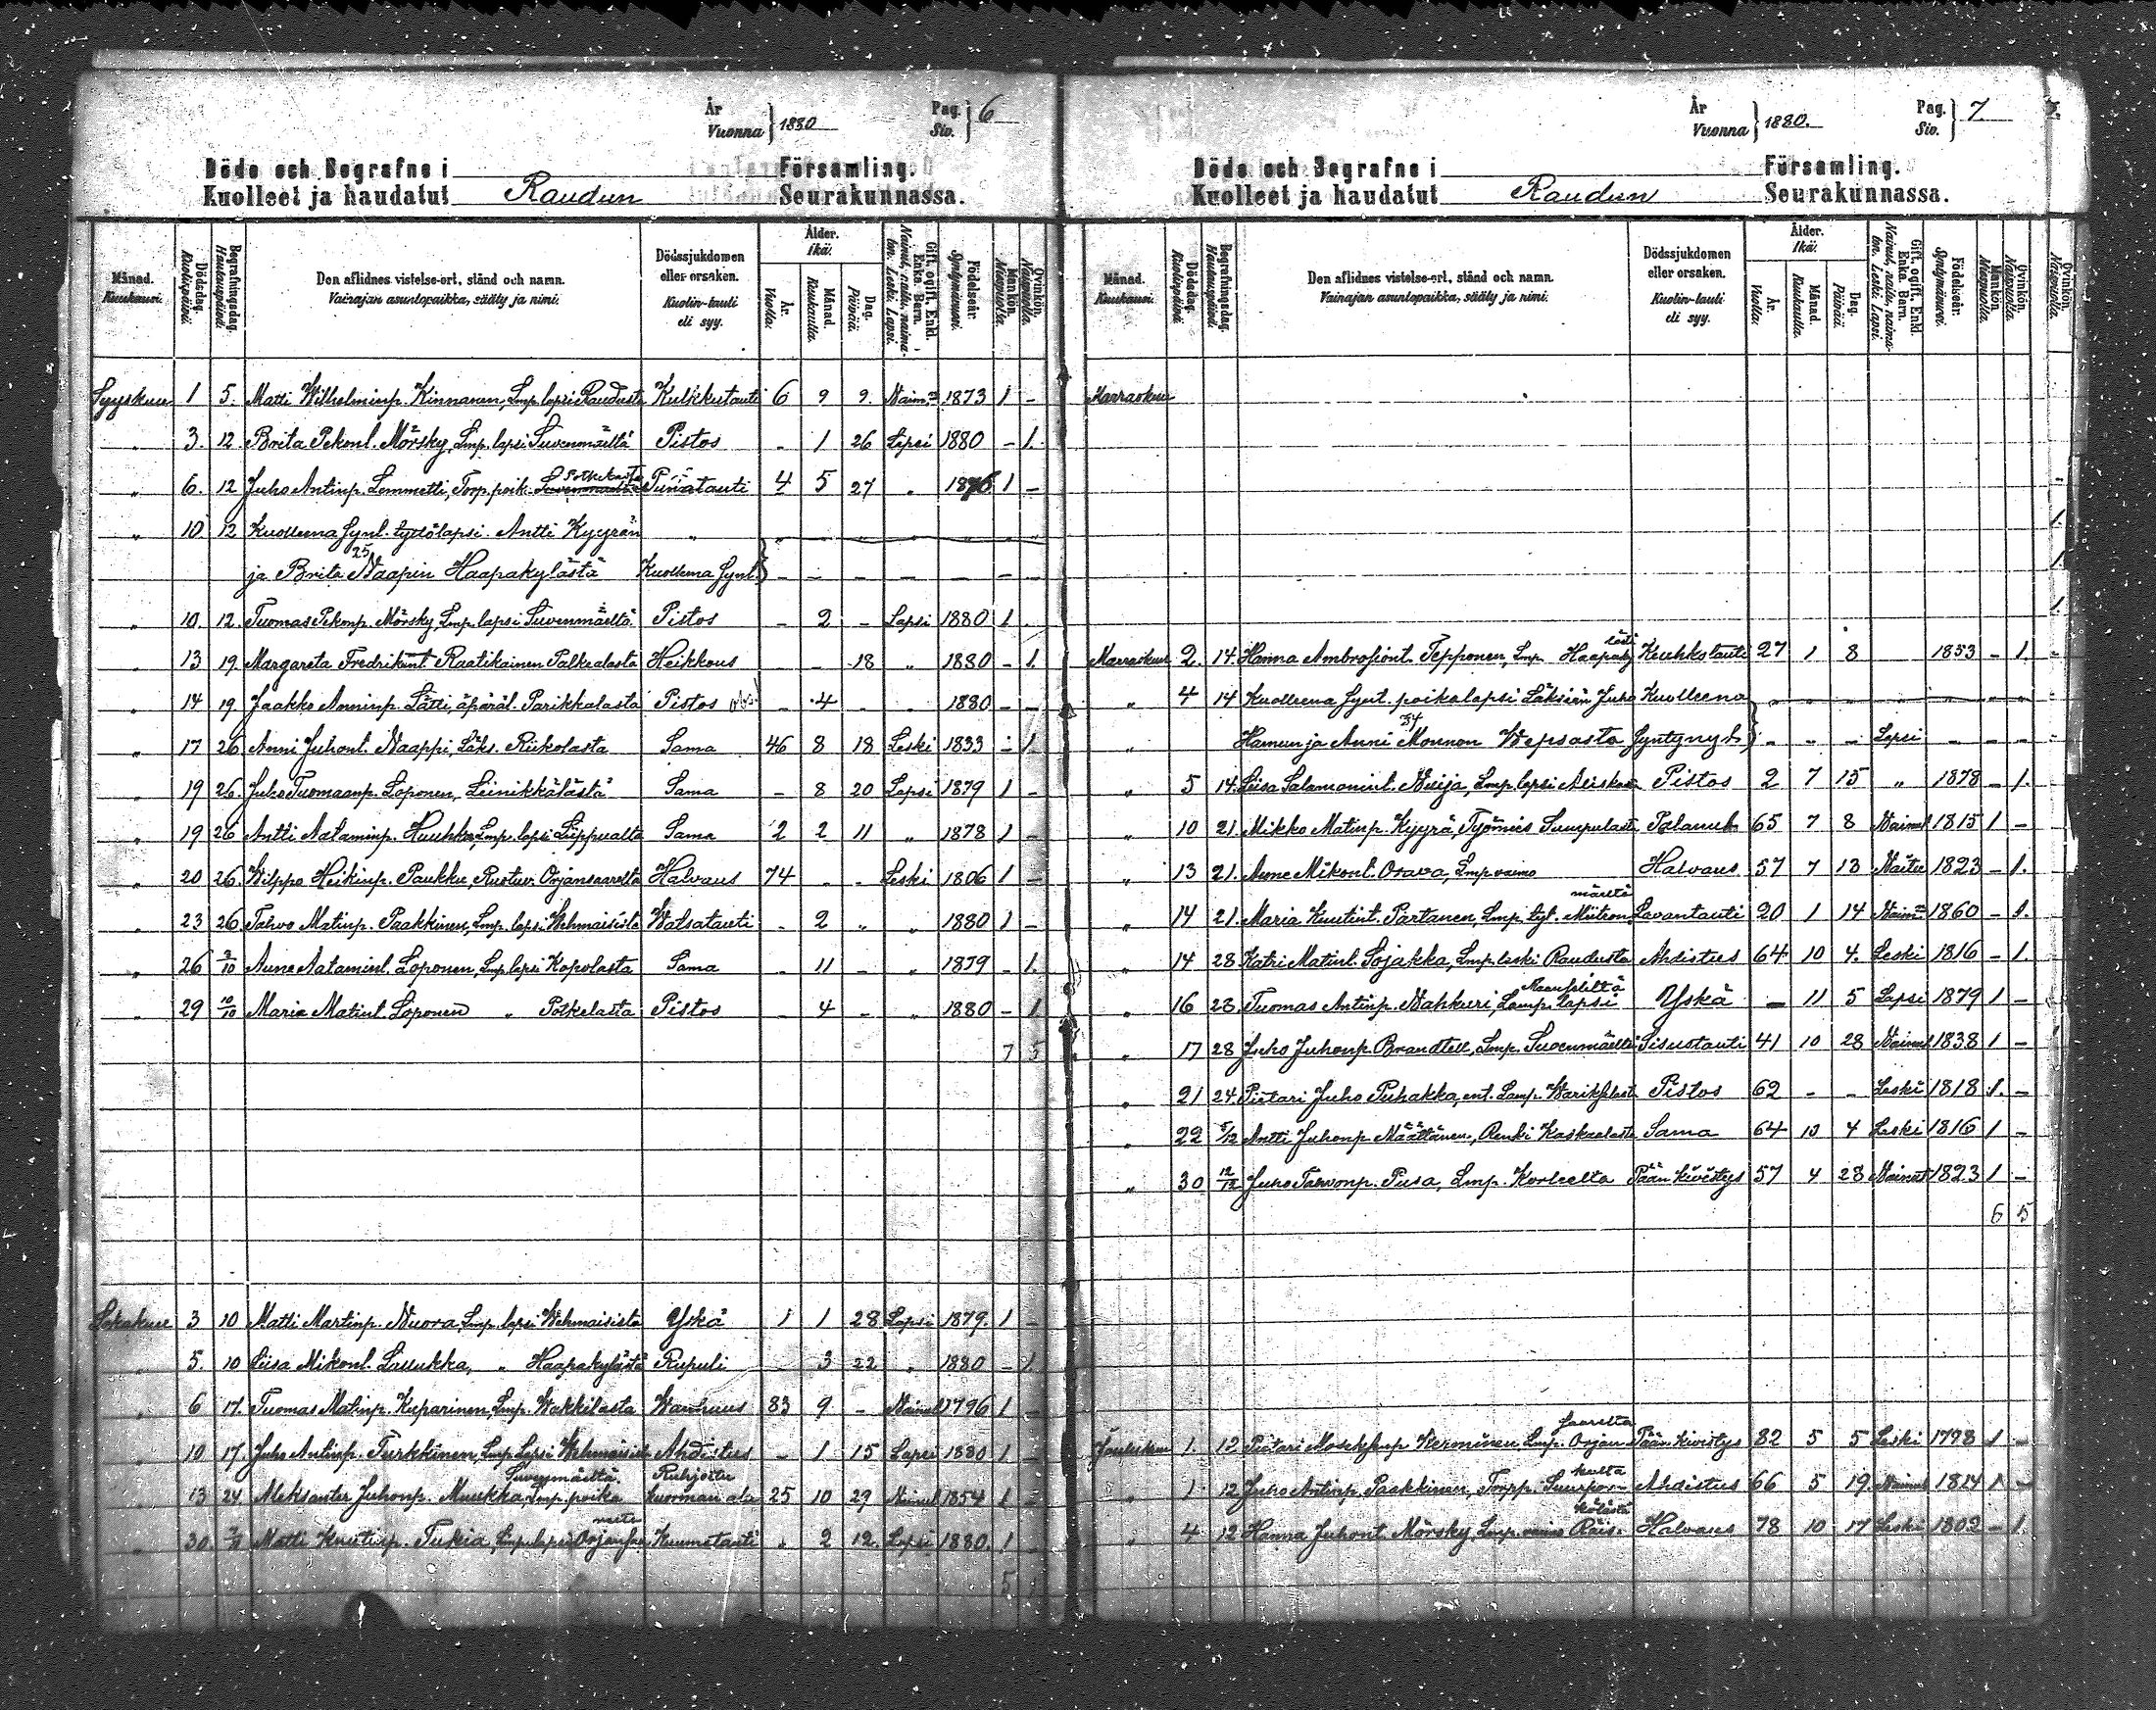 År
Vuonna } 1880
Pag.
Siv. } 6
Döde och Begrafne i Församling.
Kuolleet ja haudatut Raudun Seurakunnassa.
Månad. Kuukausi.
Dödsdag. Kuolinpäivä.
Begrafningsdag. Hautauspäivä.
Den aflidnes vistelse-ort, stånd och namn.
Vainajan asuntopaikka, sääty ja nimi.
Dödssjukdomen eller orsaken.
Kuolin-tauti eli syy.
Ålder. Ikä.
År. Vuotta.
Månad. Kuukautta.
Dag. Päivää.
Gift, ogift, Enkl. Enka. Barn.
Nainut, naitu, naimaton. Leski. Lapsi.
Födelseår. Syntymävuosi.
Mankön. Miespuolia.
Qvinkön. Naispuolia.
Syyskuu 1 5. Matti Wilhelminp. Kinnanen, Lmp. lapsi Raudusta Kulkkutauti 6 9 9. Naim. 1873 1 -
„ 3. 12. Brita Pekont. Mörsky, Lmp. lapsi Suvenmäeltä Pistos - 1 26 Lapsi 1880 - 1.
„ 6. 12 Juho Antinp. Lemmetti, Torp. poik. Potkelasta Punatauti 4 5 27 „ 1876 1 -
„ 10 12 Kuolleena Synt. tyttölapsi. Antti Kyyrän „
ja Brita 25 Naapin Haapakylästä Kuolleena Synt. } - - - - - - -
„ 10. 12. Tuomas Pekonp. Mörsky, Lmp. lapsi Suvenmäeltä Pistos - 2 - Lapsi 1880 1.
„ 13 19. Margareta Fredrikint. Raatikainen Palkealasta Heikkous - - 18 „ 1880 - 1.
„ 14 19 Jaakko Anninp. Lätti, äpäräl. Parikkalasta Pistos - 4 - . 1880 - -
„ 17 26 Anni Juhont. Naappi, Läks. Riikolasta Sama 46 8 18 Leski 1833 - 1.
„ 19 26. Juho Tuomaanp. Loponen, Leinikkälästä Sama - 8 20 Lapsi 1879 1 -
„ 19 26 Antti Aataminp. Huuhka, Lmp. lapsi Lippualta Sama 2 2 11 „ 1878 1 -
„ 20 26. Wilppo Heikinp. Paukku, Rustuv. Orjansaarelta Halvaus 74 - - Leski 1806 1 -
„ 23 26 Tahvo Matinp. Paakkinen, Lmp. lapsi Wehmaisista Watsatauti - 2 „ „ 1880 1 -
„ 26 3/10 Aune Aatamint. Loponen, Lmp. lapsi Kopolasta Sama - 11 - „ 1879 - 1.
„ 29 10/10 Maria Matint. Loponen „ Potkelasta Pistos - 4 - „ 1880 - 1.
7 5
Lokakuu 3 10 Matti Martinp. Nuora, Lmp. lapsi Wehmaisista Yskä 1 1 28 Lapsi 1879. 1 -
„ 5. 10 Liisa Mikont. Laulukka, „ Haapakylästä Rupuli - 3 22 „ 1880 - 1.
„ 6 17. Tuomas Matinp. Kuparinen, Lmp. Wakkilasta Wanhuus 83 9 - Nainut 1796 1 -
„ 10 17. Juho Antinp. Turkkinen, Lmp. Lapsi Wehmaisista Ahdistus - 1 15 Lapsi 1880 1 -
Suvenmäeltä. Ruhjottu
„ 13 24 Aleksanter Juhonp. Muukka, Lmp. poika kuorman ala 25 10 29 Nainut 1854 1 -
„ 30. Matti Knuutinp. Tukia, Lmp. lapsi Orjansaa Kuumetauti „ 2 12. Lapsi 1880. 1 -
5
År
Vuonna } 1880.
Pag.
Siv. } 7
Döde och Begrafne i Församling.
Kuolleet ja haudatut Raudun Seurakunnassa.
Månad. Kuukausi.
Dödsdag. Kuolinpäivä.
Begrafningsdag. Hautauspäivä.
Den aflidnes vistelse-ort, stånd och namn.
Vainajan asuntopaikka, sääty ja nimi.
Dödssjukdomen eller orsaken.
Kuolin-tauti eli syy.
Ålder. Ikä.
År. Vuotta.
Månad. Kuukautta.
Dag. Päivää.
Gift, ogift, Enkl. Enka. Barn.
Nainut, naitu, naimaton. Leski. Lapsi.
Födelseår. Syntymävuosi.
Mankön. Miespuolia.
Qvinkön. Naispuolia.
Qvinkön. Naispuolia.
Marraskuu
Marraskuu 2. 14. Hanna Ambrosiont. Tepponen, Lmp. Haapaky lästä Keuhkotauti 27 1 8 1853 - 1.
„ 4 14 Kuolleena Synt. poikalapsi Läksiän Juho Kuolleena
„ Hamun ja Anni 34 Mounon Wepsasta Syntynyt } - - - Lapsi - - -
„ 5 14. Liisa Salamonint. Nuija, Lmp. lapsi Pistos 2 7 15 „ 1878 - 1.
„ 10 21. Mikko Matinp. Kyyrä, Työmies Sumpulasta Palanut 65 7 8 Nainut 1815 1 -
„ 13 21. Anne Mikont. Orava, Lmp. vaimo Halvaus 57 7 13 Naitu 1823 - 1.
„ 14 21. Maria Knutint. Partanen, Lmp. tyt. Miitron mäeltä Lavantauti 20 1 14 Naim. 1860 - 1.
„ 14 28. Katri Matint. Sojakka, Lmp. leski Raudusta Ahdistus 64 10 4. Leski 1816 - 1.
„ 16 28. Tuomas Antinp. Nahkuri, Lamp. lapsi Yskä - 11 5 Lapsi 1879 1 -
„ 17 28 Juho Juhonp. Brandtell, Lmp. Suvenmäeltä Sisustauti 41 10 28 Nainut 1838 1 -
„ 21 24. Pietari Juho Puhakka, ent. Lamp. Pistos 62 - - Leski 1818 1. -
„ 22 5/12 Antti Juhonp. Määttänen, Renki Kaskaalasta Sama 64 10 4 Leski 1816 1 -
„ 30 12/12 Juho Tahvonp. Pusa, Lmp. Korleelta Pään kivistys 57 4 28 Nainut 1823 1 -
6 5
Joulukuu 1. 12 Pietari Lmp. Orjan saarelta Pään kivistys 82 5 5 Leski 1798 1 -
„ 1 12 Juho Antinp. Paakkinen, Torpp. Ahdistus 66 5 19. Nainut 1814 1 -
„ 4 12 Hanna Juhont. Mörsky, Lmp. vaimo Räis. kälästä Halvaus 78 10 17 Leski 1802 - 1.